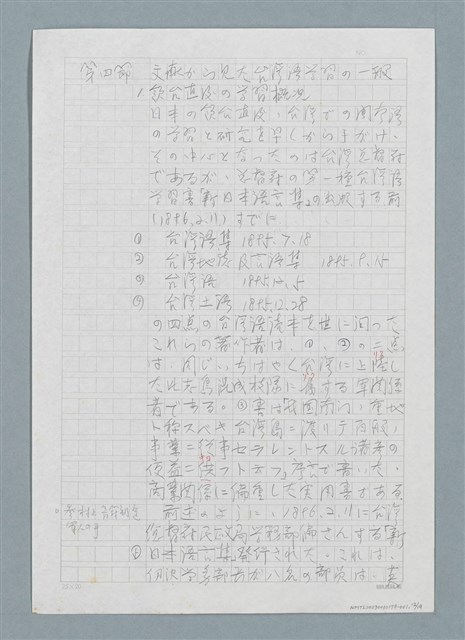 第四部 文献から見た台湾語学習の一班
1. 領台直後の学習概況
日本の領台直後、台湾での閩南語
の学習と研究を早くから手がけ、
その中心となったのは台湾総督府
であるが、総督府の第一種台湾語
学習書「新日本語言集」の出版する前
(1896.2.11)すでに
① 台湾語集 1895.7.18
② 台湾地誌及言語集 1895.9.15
③ 台湾語 1895.12.5
④ 台湾土語 1895.12.28
の四点の台湾語読本を世に問った
これらの著作者は、①、②の二点
は、同じいちはやく台湾に上陸し
た比志島混成枝隊に属する軍関係
者である。③書は「我国南門ノ要地
ト称スベキ台湾島ニ渡リテ百般ノ
事業ニ従事セラレントスル諸君の
便益ニ供フトオフ」序言で書いた、
商業関係に偏重した実用書である
前述のように、1896.2.11に台湾
総督府民政局学務部編さんする「新
日本語言集」発行された。これは、
伊沢学務部長が八名の部員は、直